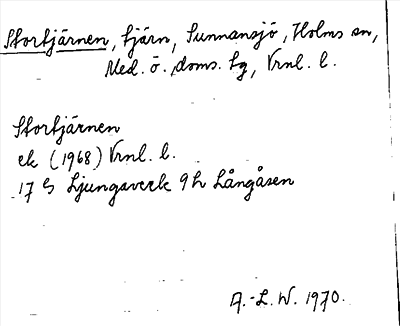 Stortjärnen, tjärn, Sunnansjö, Holms sn,
Med. ö. doms. tg, Vrnl. l.
Stortjärnen
ek (1968) Vrnl. l.
17 G Ljungaverk 9h Långåsen
A.-L. W. 1970.